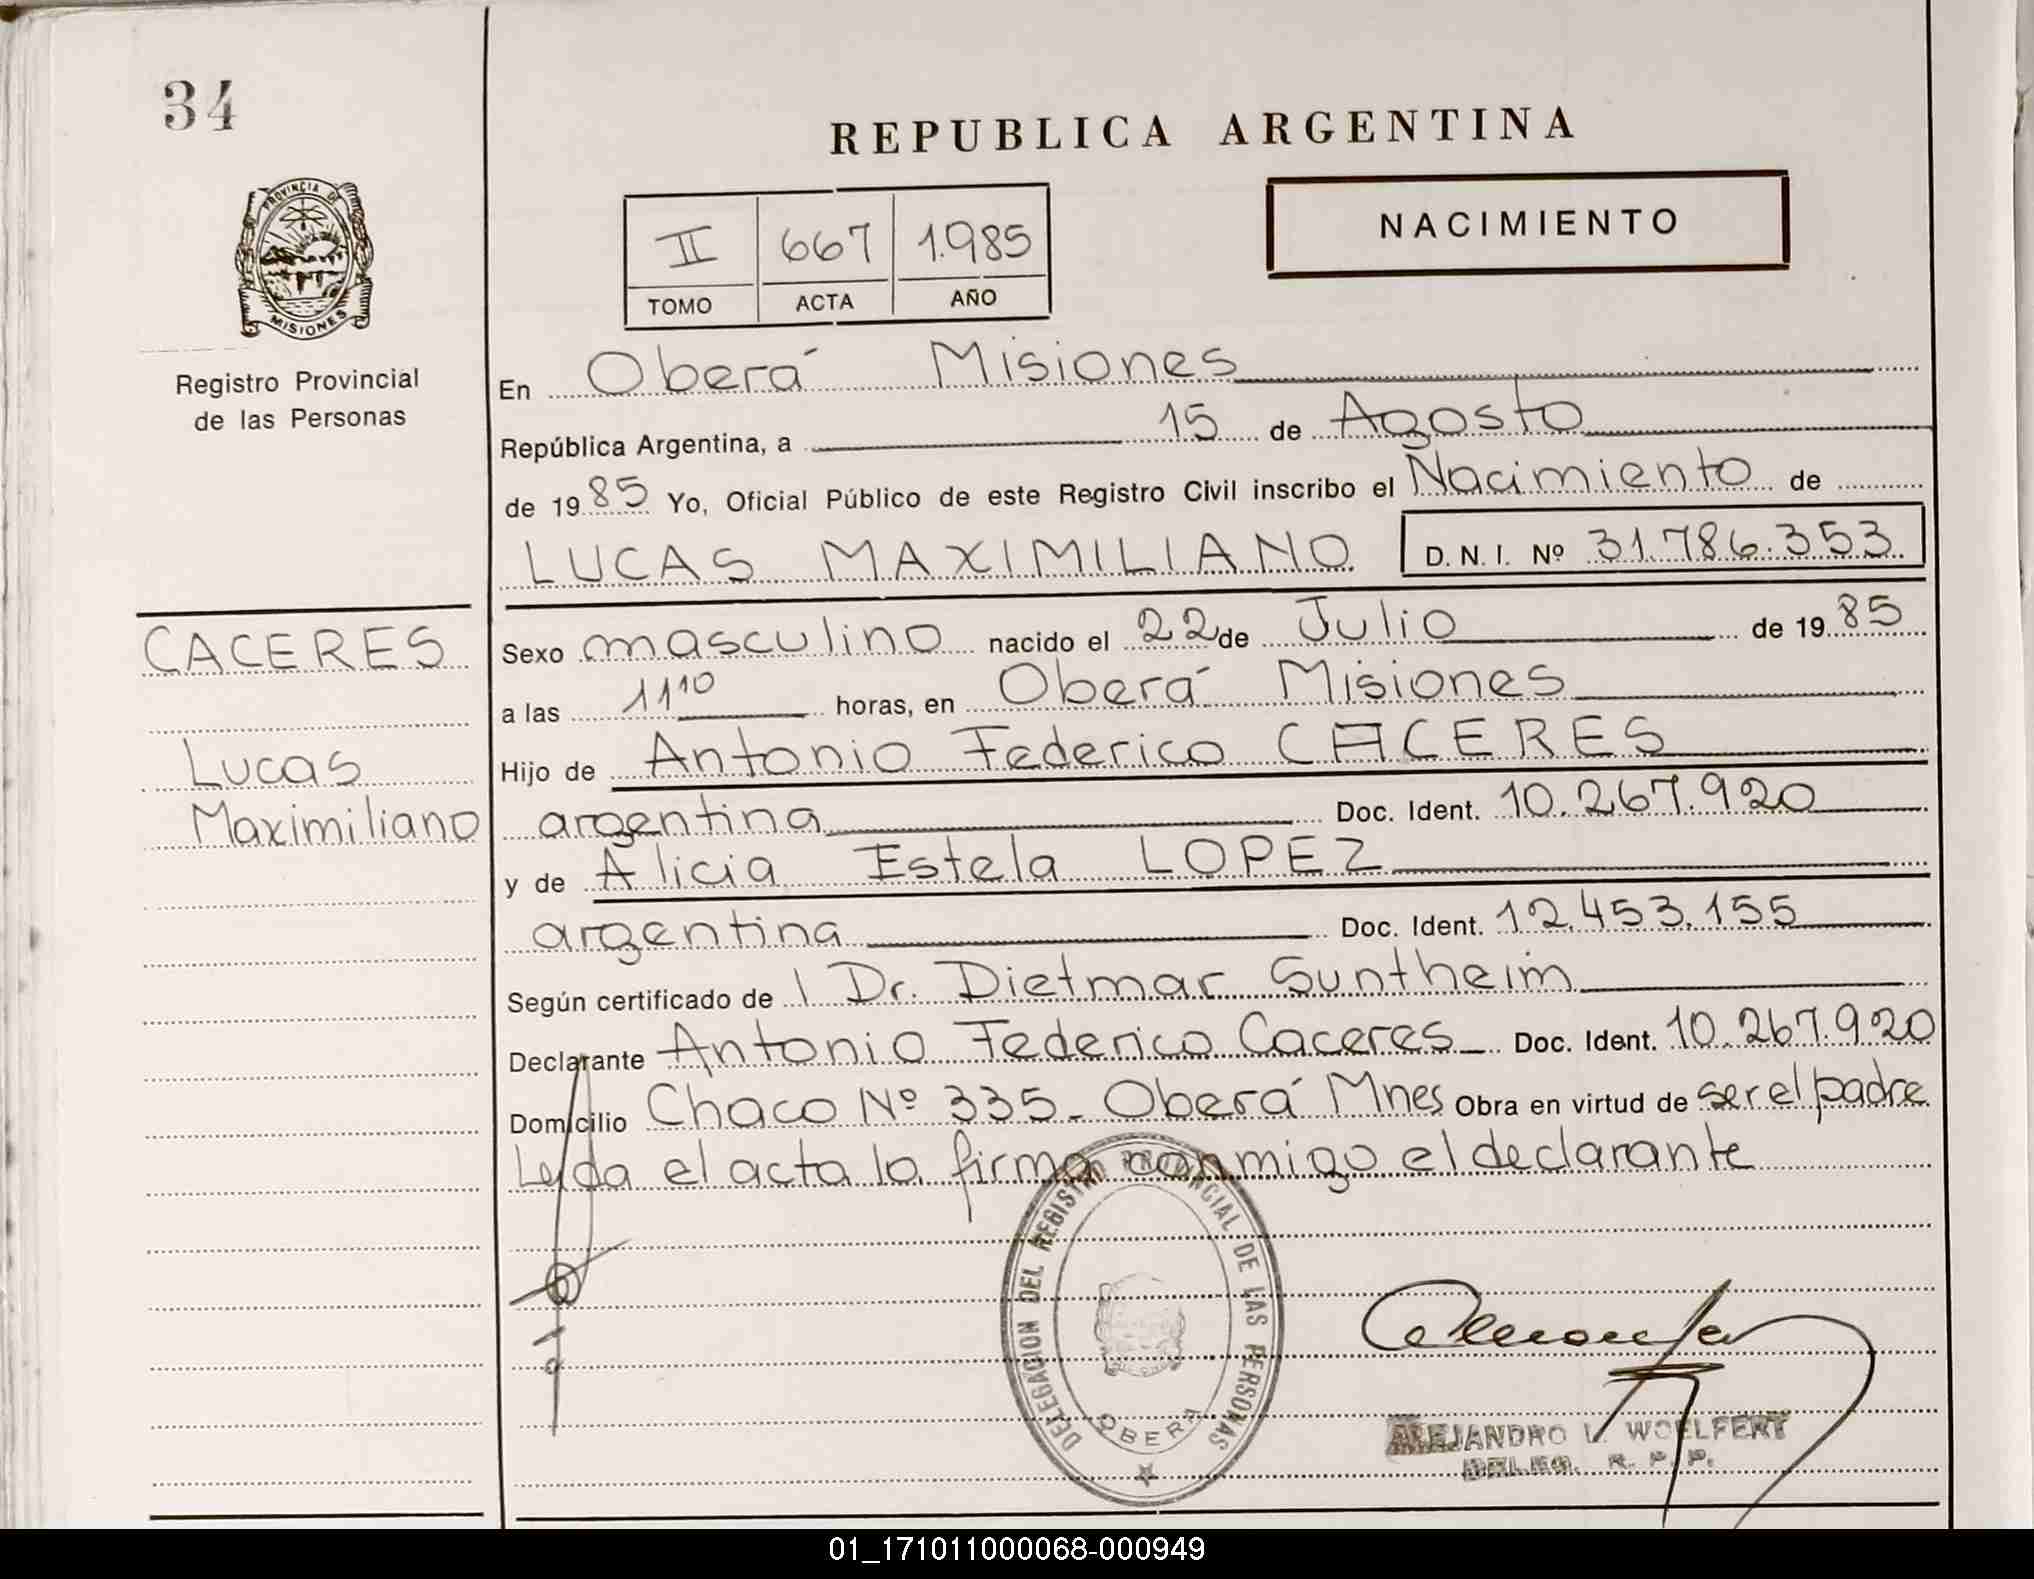 34
REPUBLICA ARGENTINA
PROVINCIA DE
MISIONES
II 667 1.985
TOMO ACTA AÑO
NACIMIENTO
Registro Provincial
de las Personas
En Oberá Misiones
República Argentina, a 15 de Agosto
de 1985 Yo, Oficial Público de este Registro Civil inscribo el Nacimiento de
LUCAS MAXIMILIANO D.N.I. Nº 31.786.353
CACERES
Lucas
Maximiliano
Sexo masculino nacido el 22 de Julio de 1985
a las 11 10 horas, en Oberá Misiones
Hijo de Antonio Federico CACERES
argentina Doc. Ident. 10.267.920
y de Alicia Estela LOPEZ
argentina Doc. Ident. 12.453.155
Según certificado de Dr. Dietmar Suntheim
Declarante Antonio Federico Caceres Doc. Ident. 10.267.920
Domicilio Chaco Nº 335- Oberá Mnes Obra en virtud de ser el padre
Leyda el acta la firma conmigo el declarante
DELEGACION DEL REGISTRO PROVINCIAL DE LAS PERSONAS
OBERA
ALEJANDRO L. WOELFERT
DELEG. R. P. P.
01_171011000068-000949